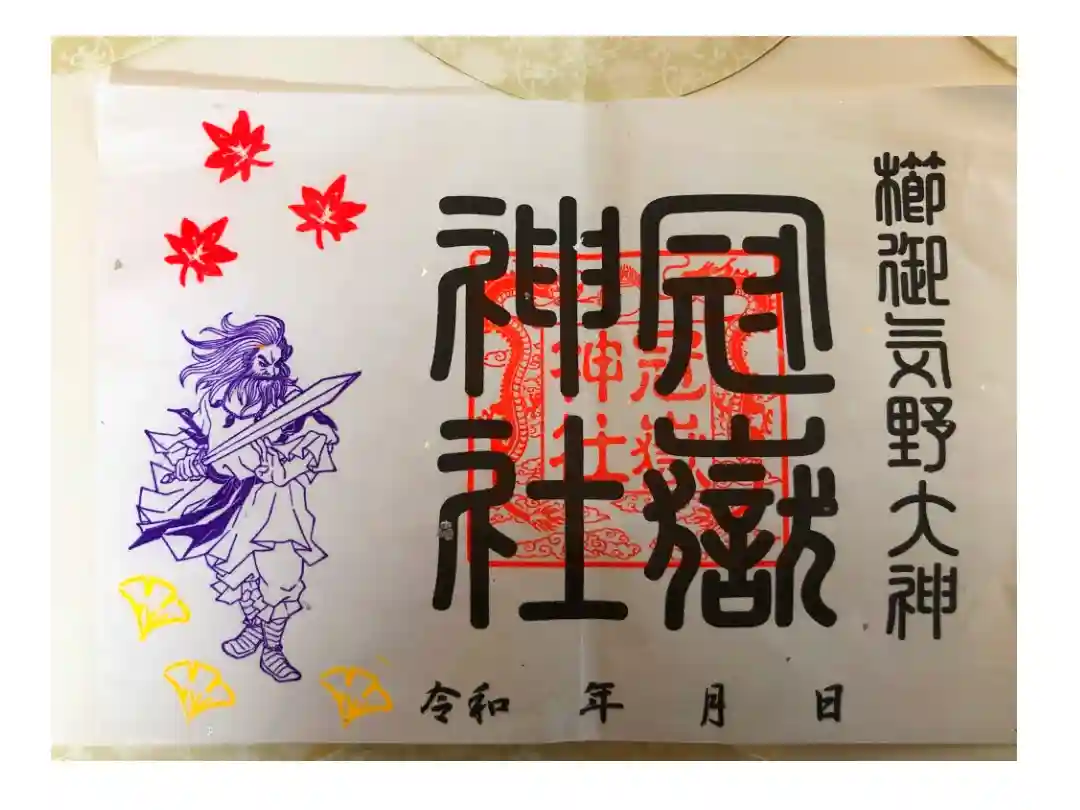 櫛御気野大神
冠嶽
神社
冠嶽
神社
令和　年　月　日